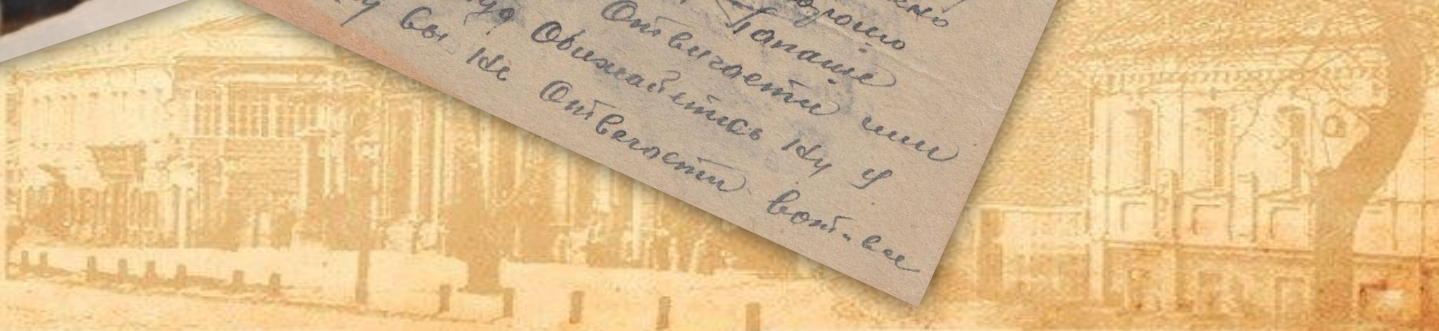 хорошо
Папаше
Отвичаети или
Обижайетись Ну я
вы Не Отвечаети вот-все